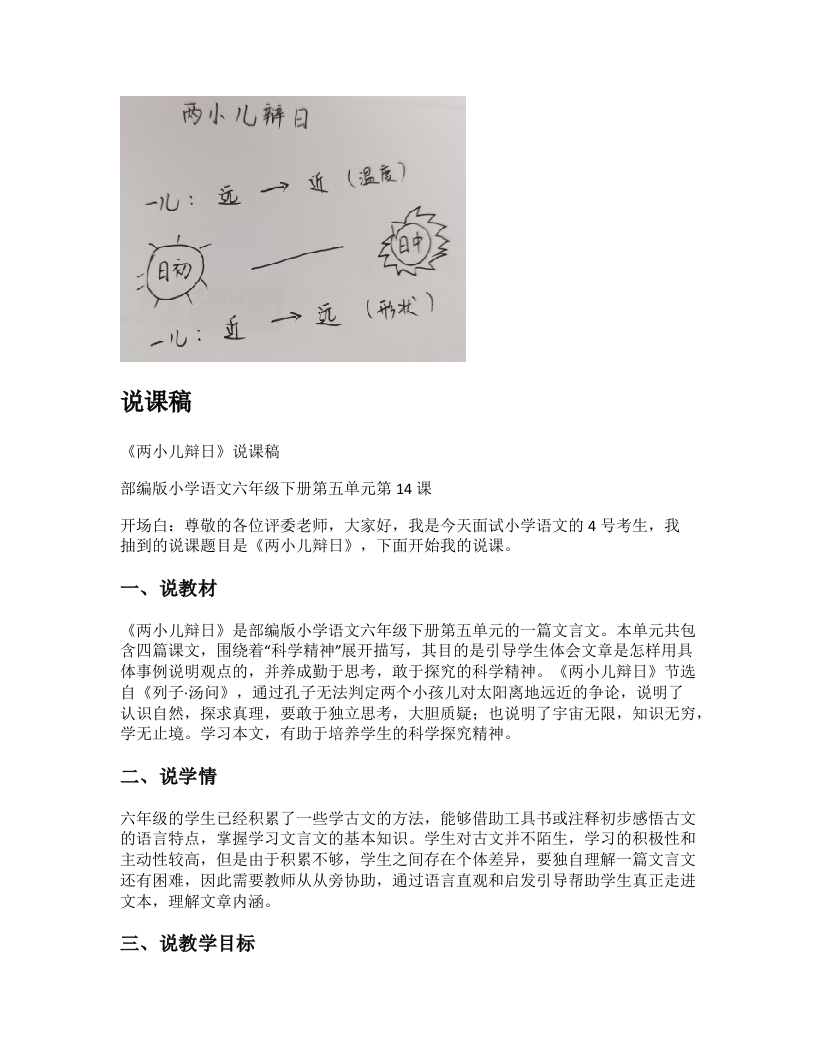 两小儿辩日
一儿：远 → 近（温度）
日初 日中
一儿：近 → 远（形状）
说课稿
《两小儿辩日》说课稿
部编版小学语文六年级下册第五单元第 14 课
开场白：尊敬的各位评委老师，大家好，我是今天面试小学语文的 4 号考生，我
抽到的说课题目是《两小儿辩日》，下面开始我的说课。
一、说教材
《两小儿辩日》是部编版小学语文六年级下册第五单元的一篇文言文。本单元共包
含四篇课文，围绕着“科学精神”展开描写，其目的是引导学生体会文章是怎样用具
体事例说明观点的，并养成勤于思考，敢于探究的科学精神。《两小儿辩日》节选
自《列子·汤问》，通过孔子无法判定两个小孩儿对太阳离地远近的争论，说明了
认识自然，探求真理，要敢于独立思考，大胆质疑；也说明了宇宙无限，知识无穷，
学无止境。学习本文，有助于培养学生的科学探究精神。
二、说学情
六年级的学生已经积累了一些学古文的方法，能够借助工具书或注释初步感悟古文
的语言特点，掌握学习文言文的基本知识。学生对古文并不陌生，学习的积极性和
主动性较高，但是由于积累不够，学生之间存在个体差异，要独自理解一篇文言文
还有困难，因此需要教师从从旁协助，通过语言直观和启发引导帮助学生真正走进
文本，理解文章内涵。
三、说教学目标